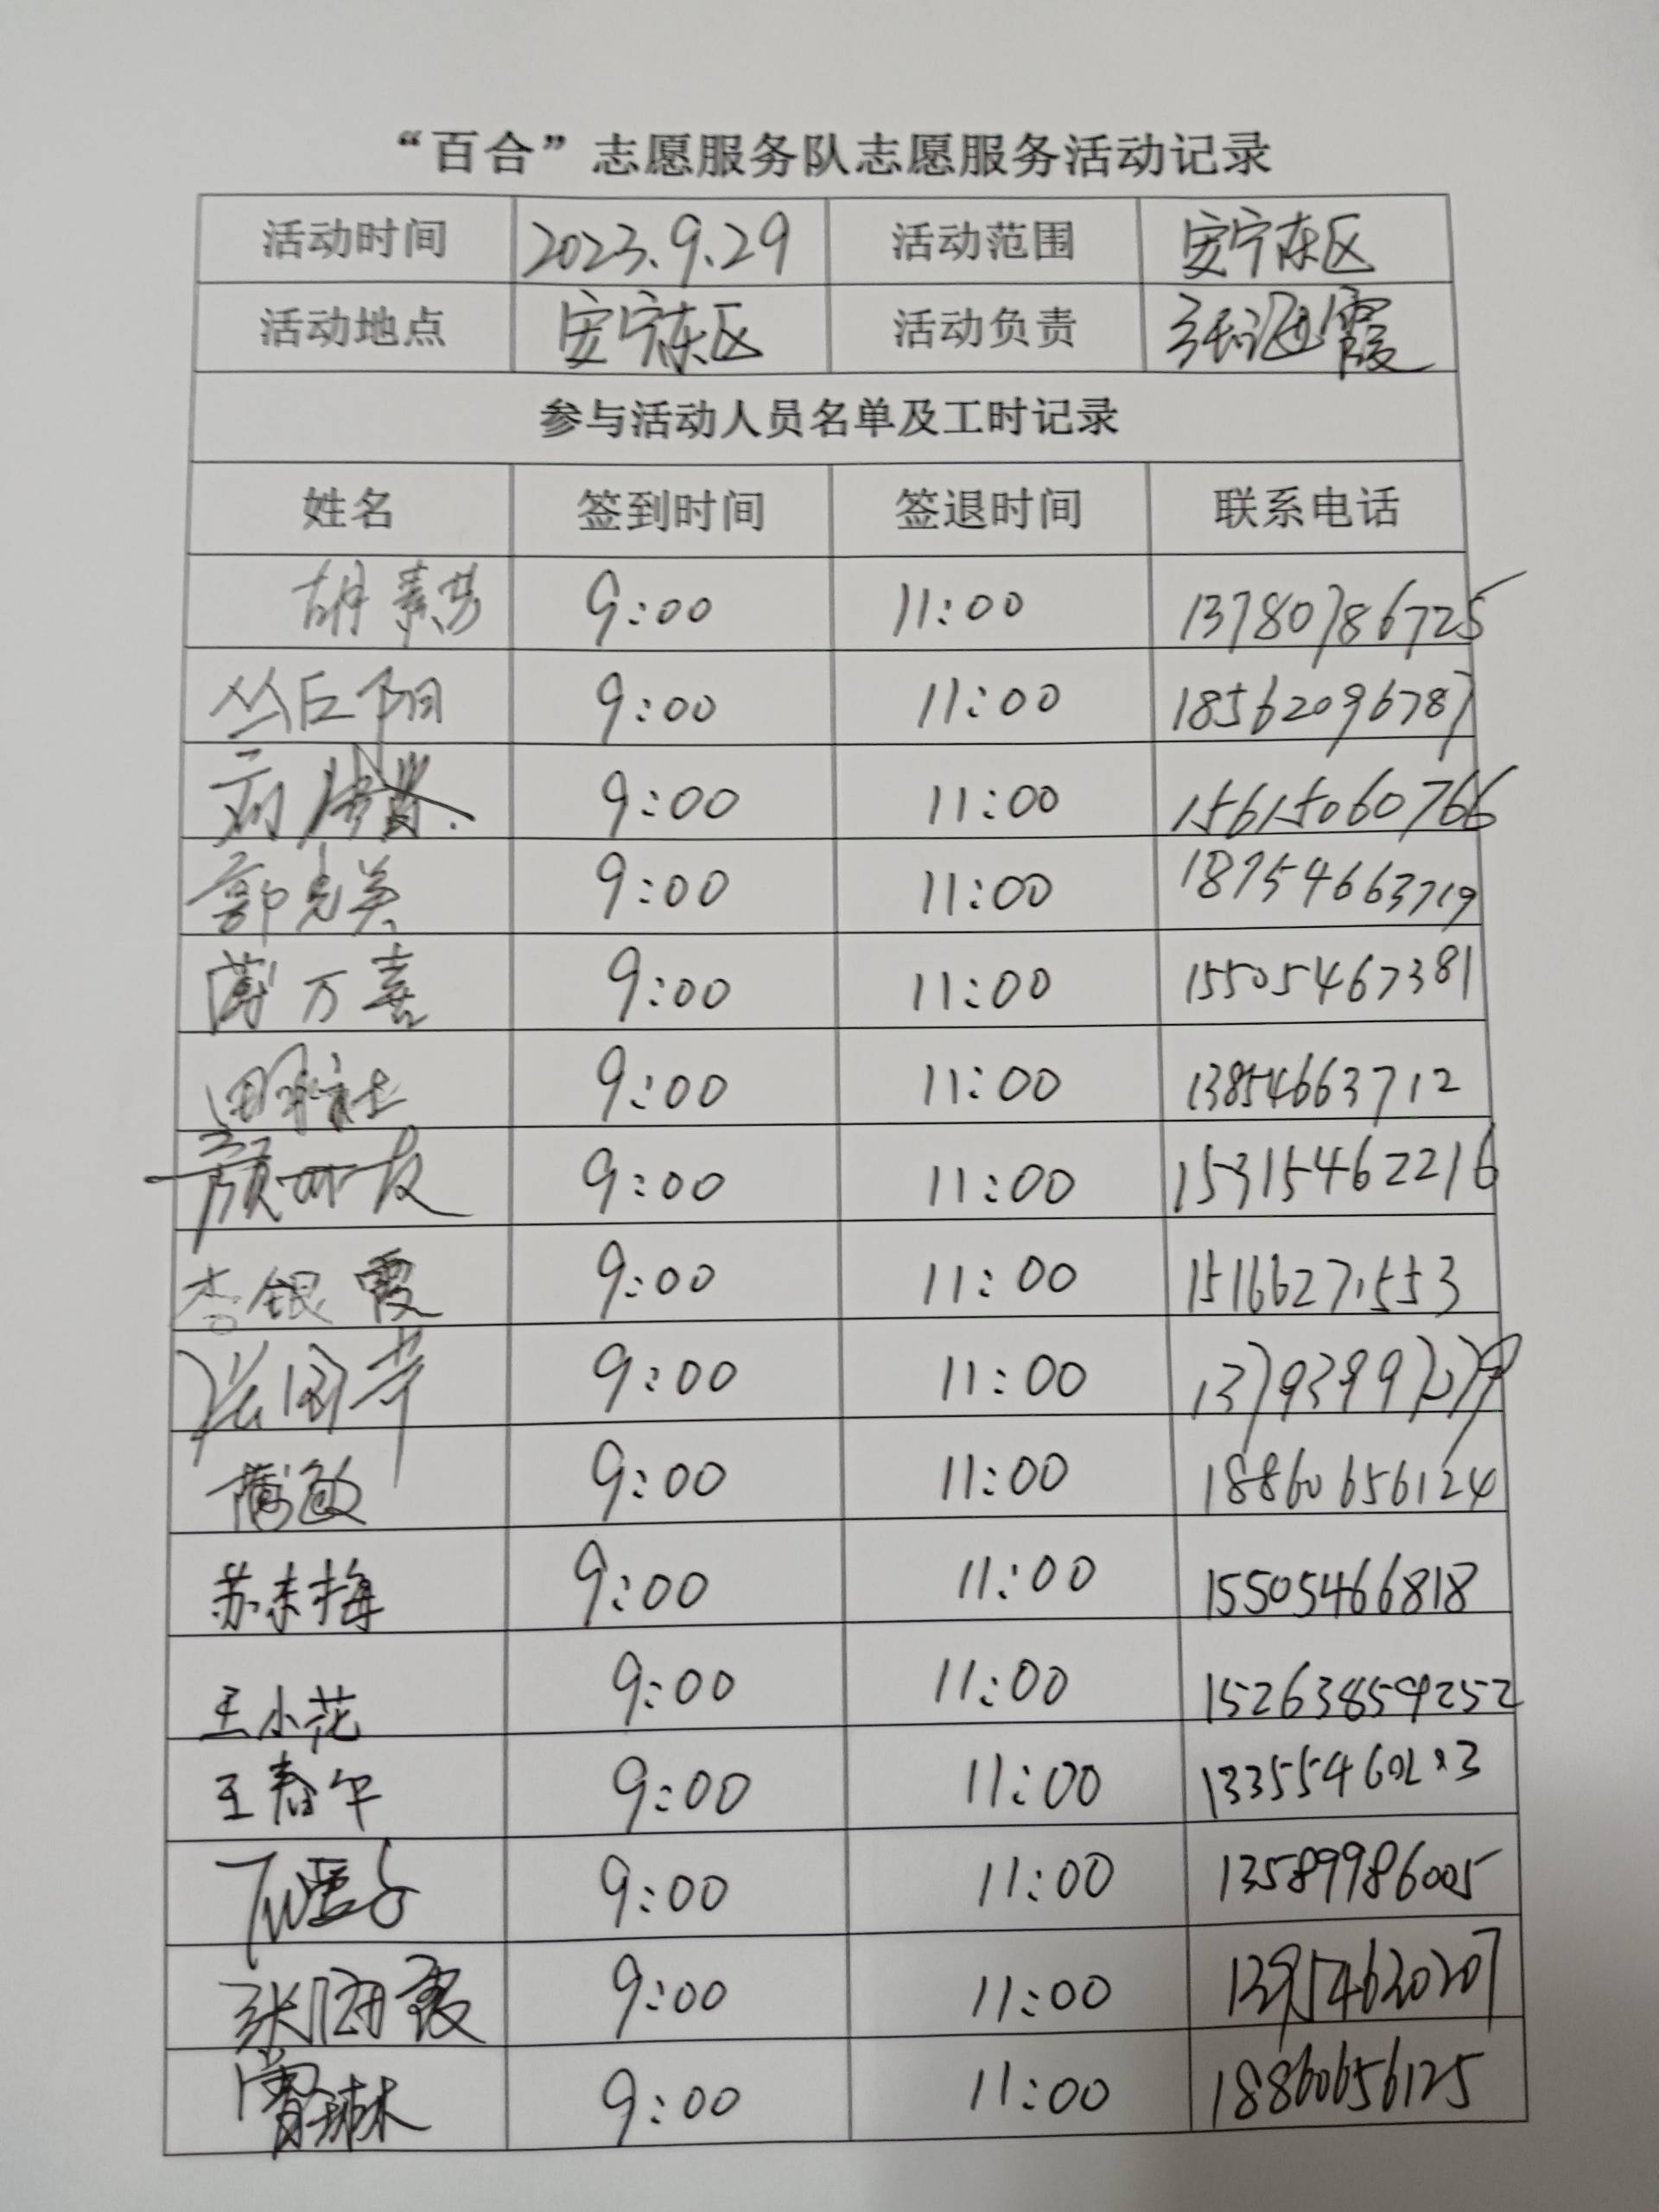 “百合”志愿服务队志愿服务活动记录
活动时间 2023.9.29 活动范围 安宁东区
活动地点 安宁东区 活动负责 张海霞
参与活动人员名单及工时记录
姓名 签到时间 签退时间 联系电话
胡素芳 9:00 11:00 13780786725
丛丘阳 9:00 11:00 18562096787
9:00 11:00 15615060766
郭光美 9:00 11:00 18754663719
薄万喜 9:00 11:00 15505467381
9:00 11:00 13854663712
9:00 11:00 15315462216
李银霞 9:00 11:00 15166271553
9:00 11:00
9:00 11:00 18860656124
苏来梅 9:00 11:00 15505466818
王小花 9:00 11:00 152638594252
王春午 9:00 11:00
9:00 11:00 13589986005
张海霞 9:00 11:00 13954620207
9:00 11:00 18860656125